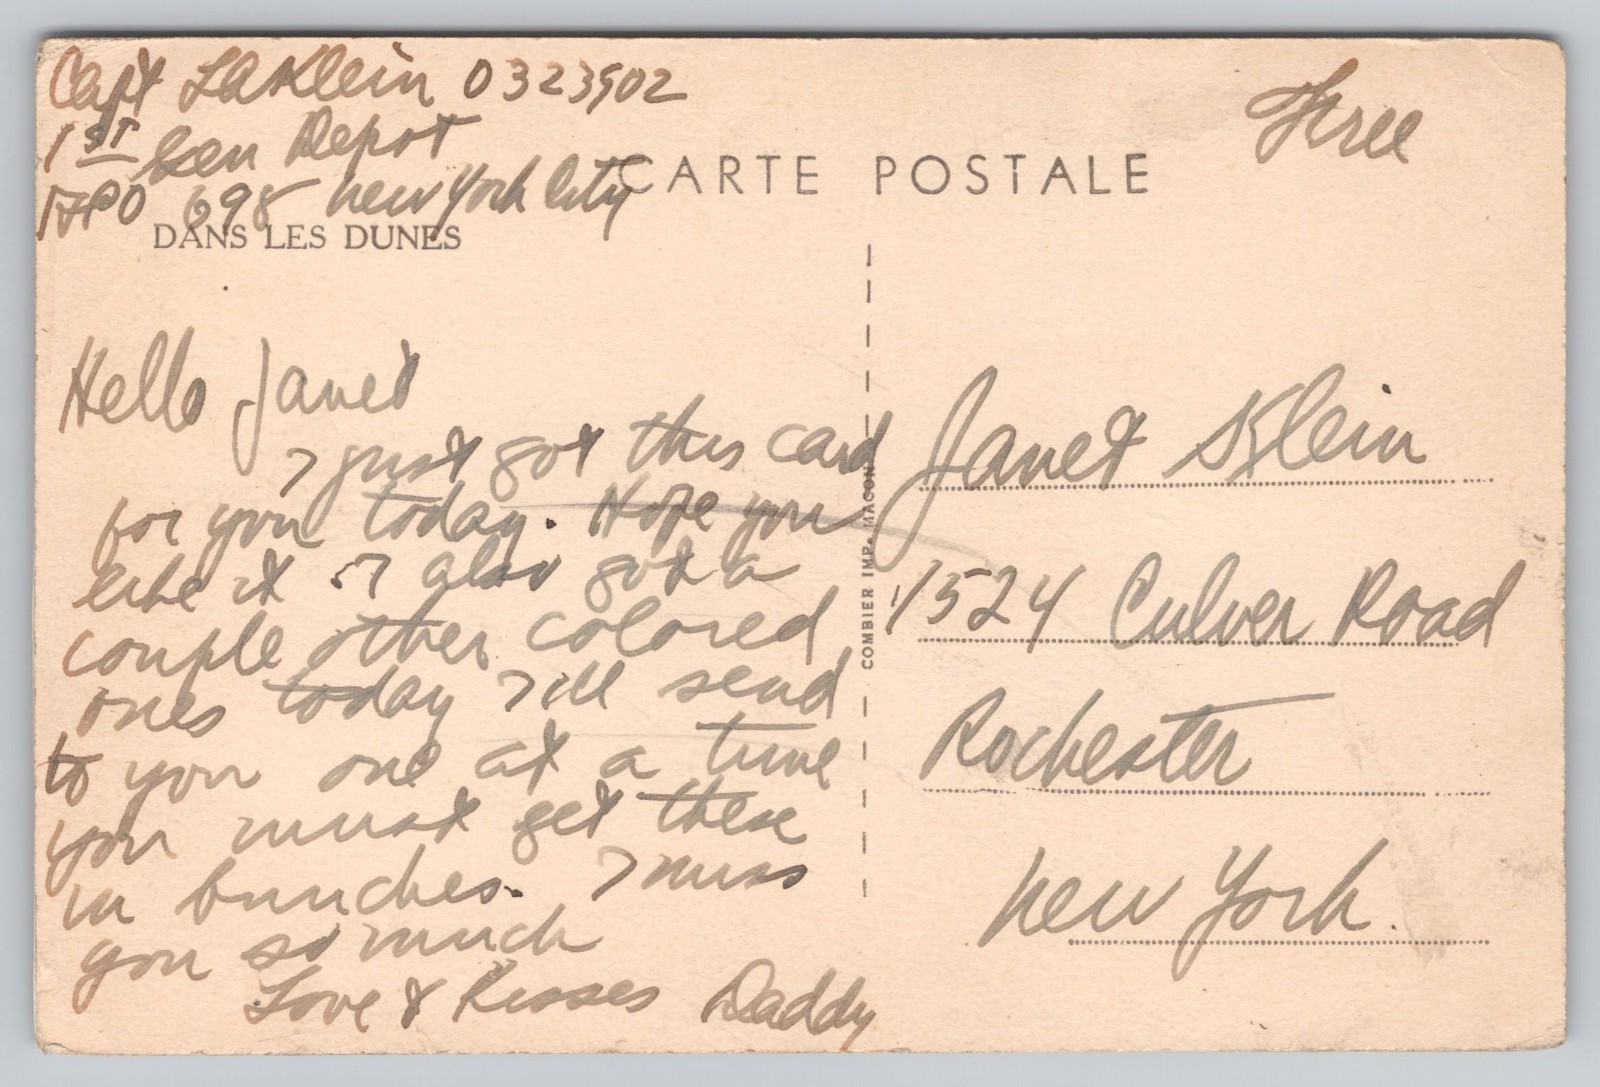 Capt LA Klein 0323502
1ST Gen Depot
APO 698 New York City
Free
CARTE POSTALE
DANS LES DUNES
Hello Janet
I just got this card
for you today. Hope you
like it. I also got a
couple other colored
ones today I'll send
to you one at a time
you must get these
in bunches. I miss
you so much
Love & Kisses Daddy
COMBIER IMP. MACON
Janet Klein
1524 Culver Road
Rochester
New York.